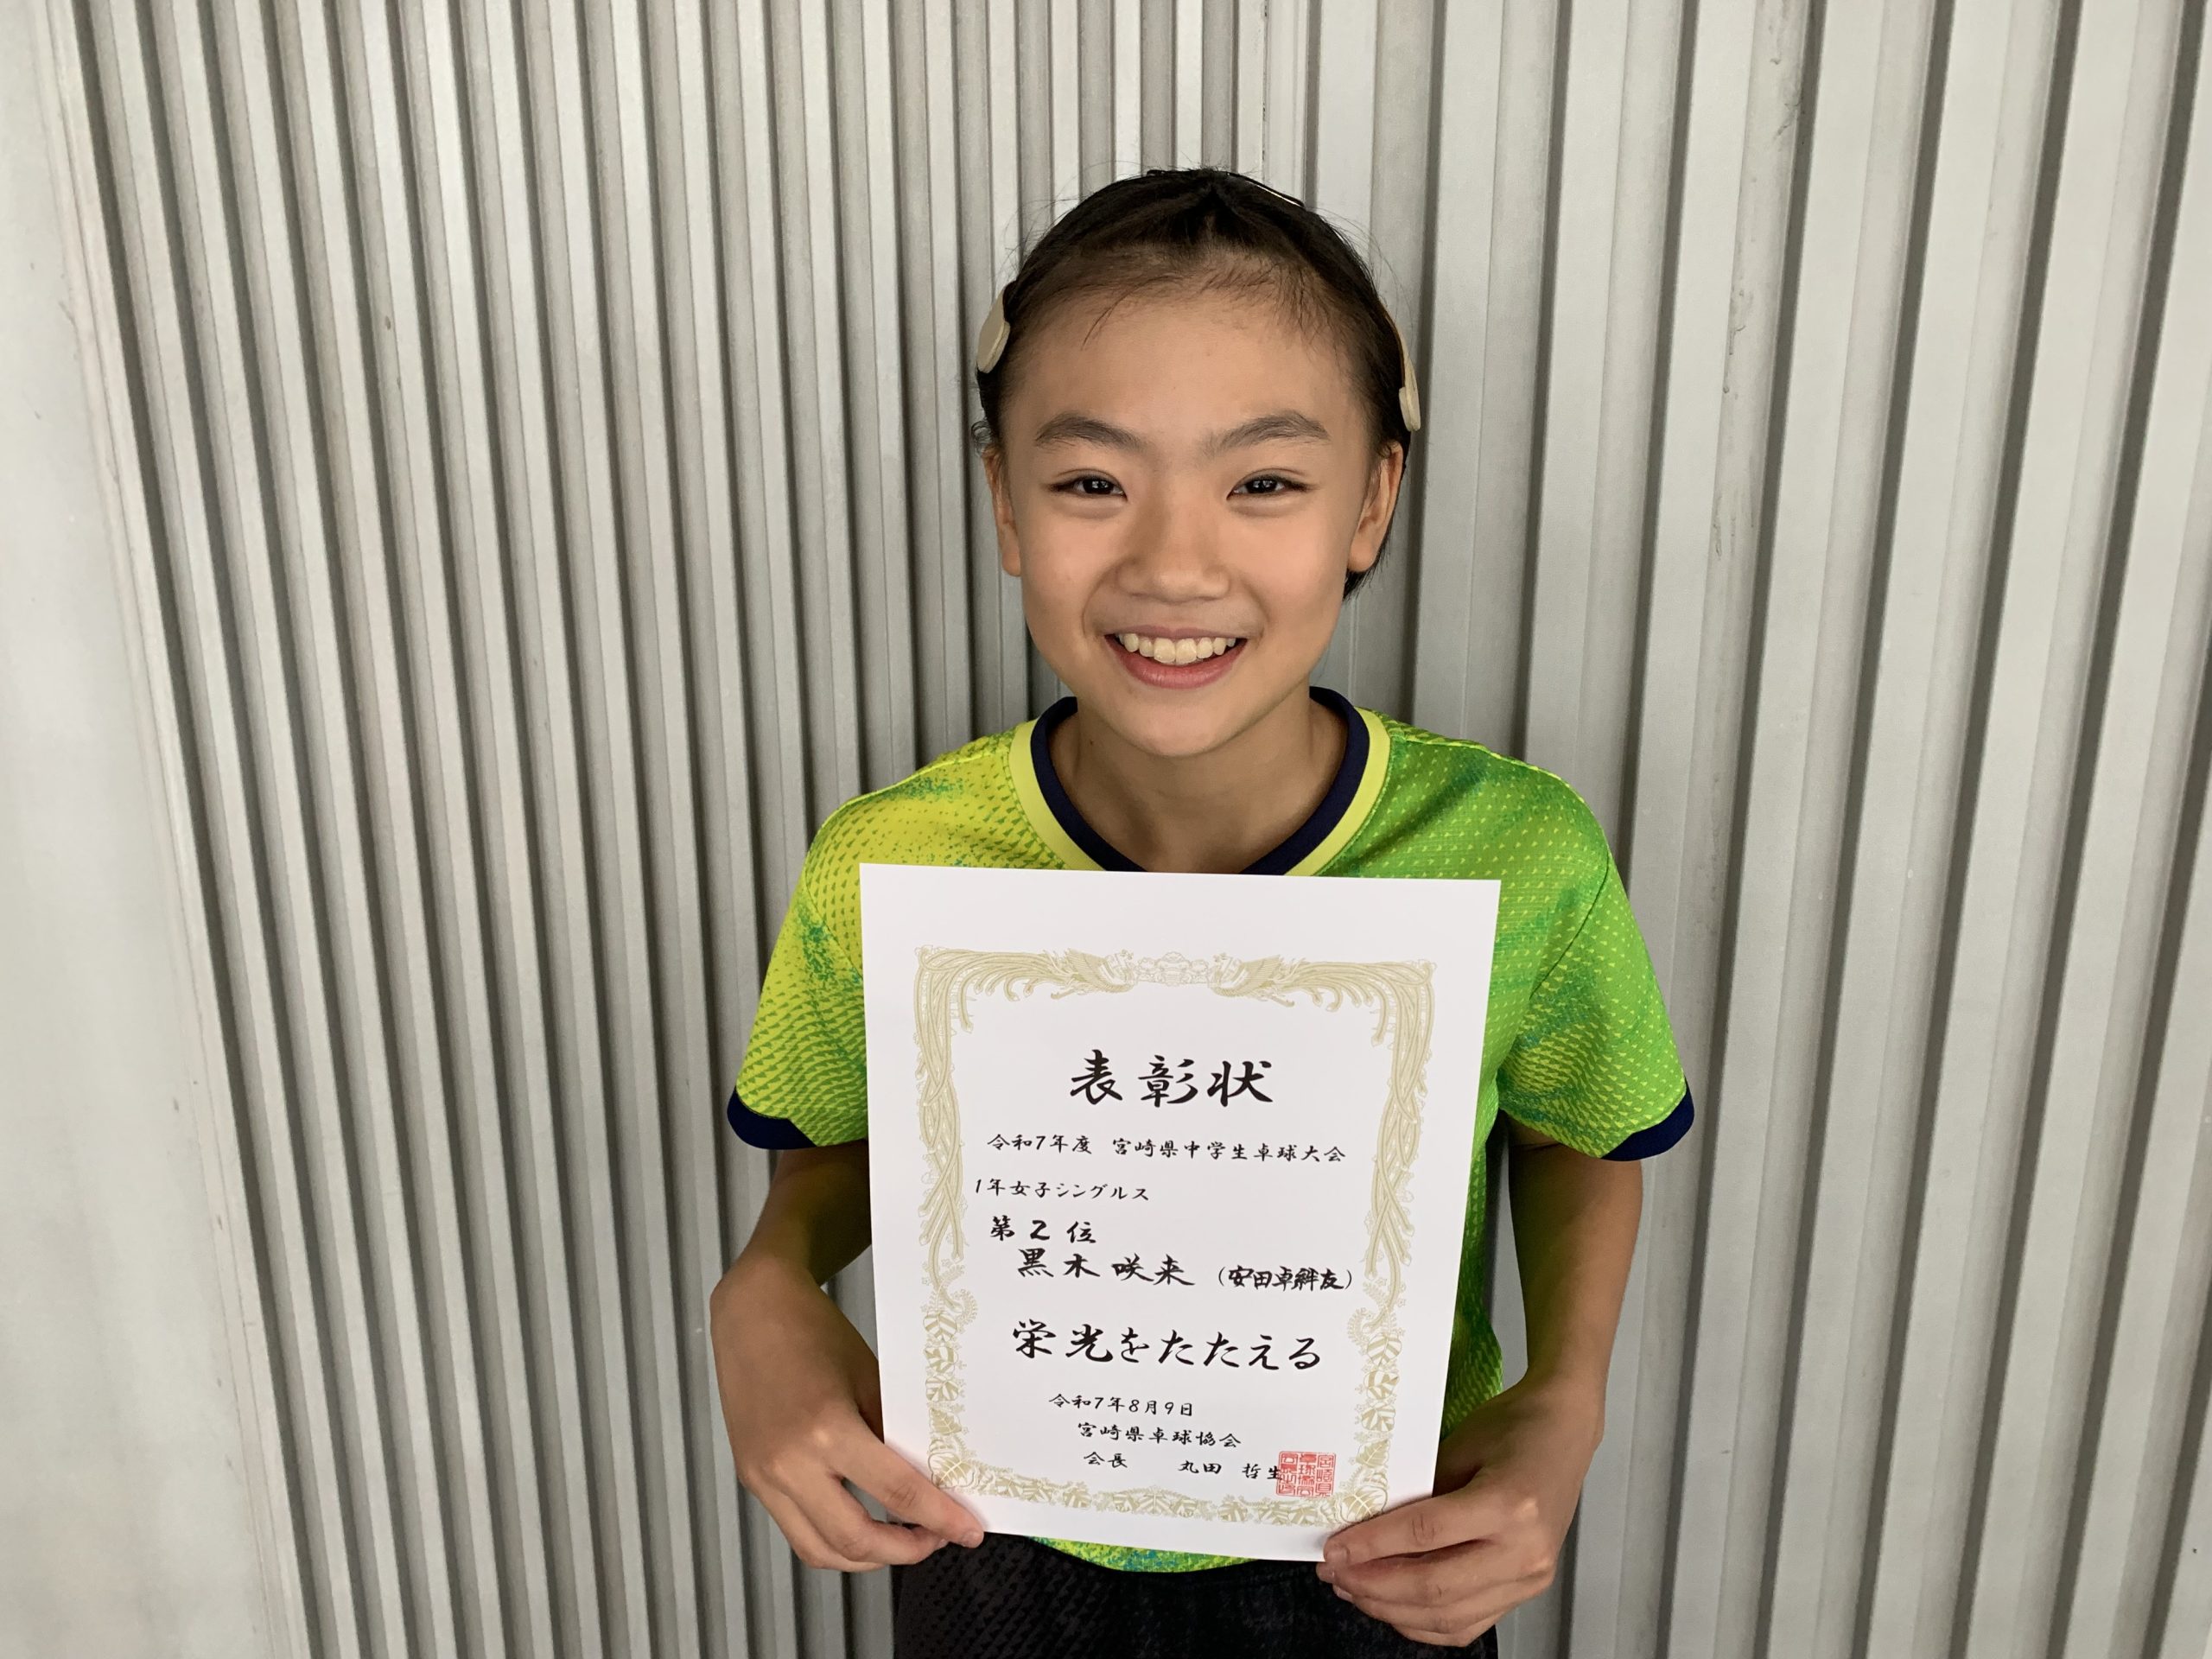 表彰状
令和7年度 宮崎県中学生卓球大会
1年女子シングルス
第2位
黒木咲来 (安田卓絆友)
栄光をたたえる
令和7年8月9日
宮崎県卓球協会
会長 丸田 哲生